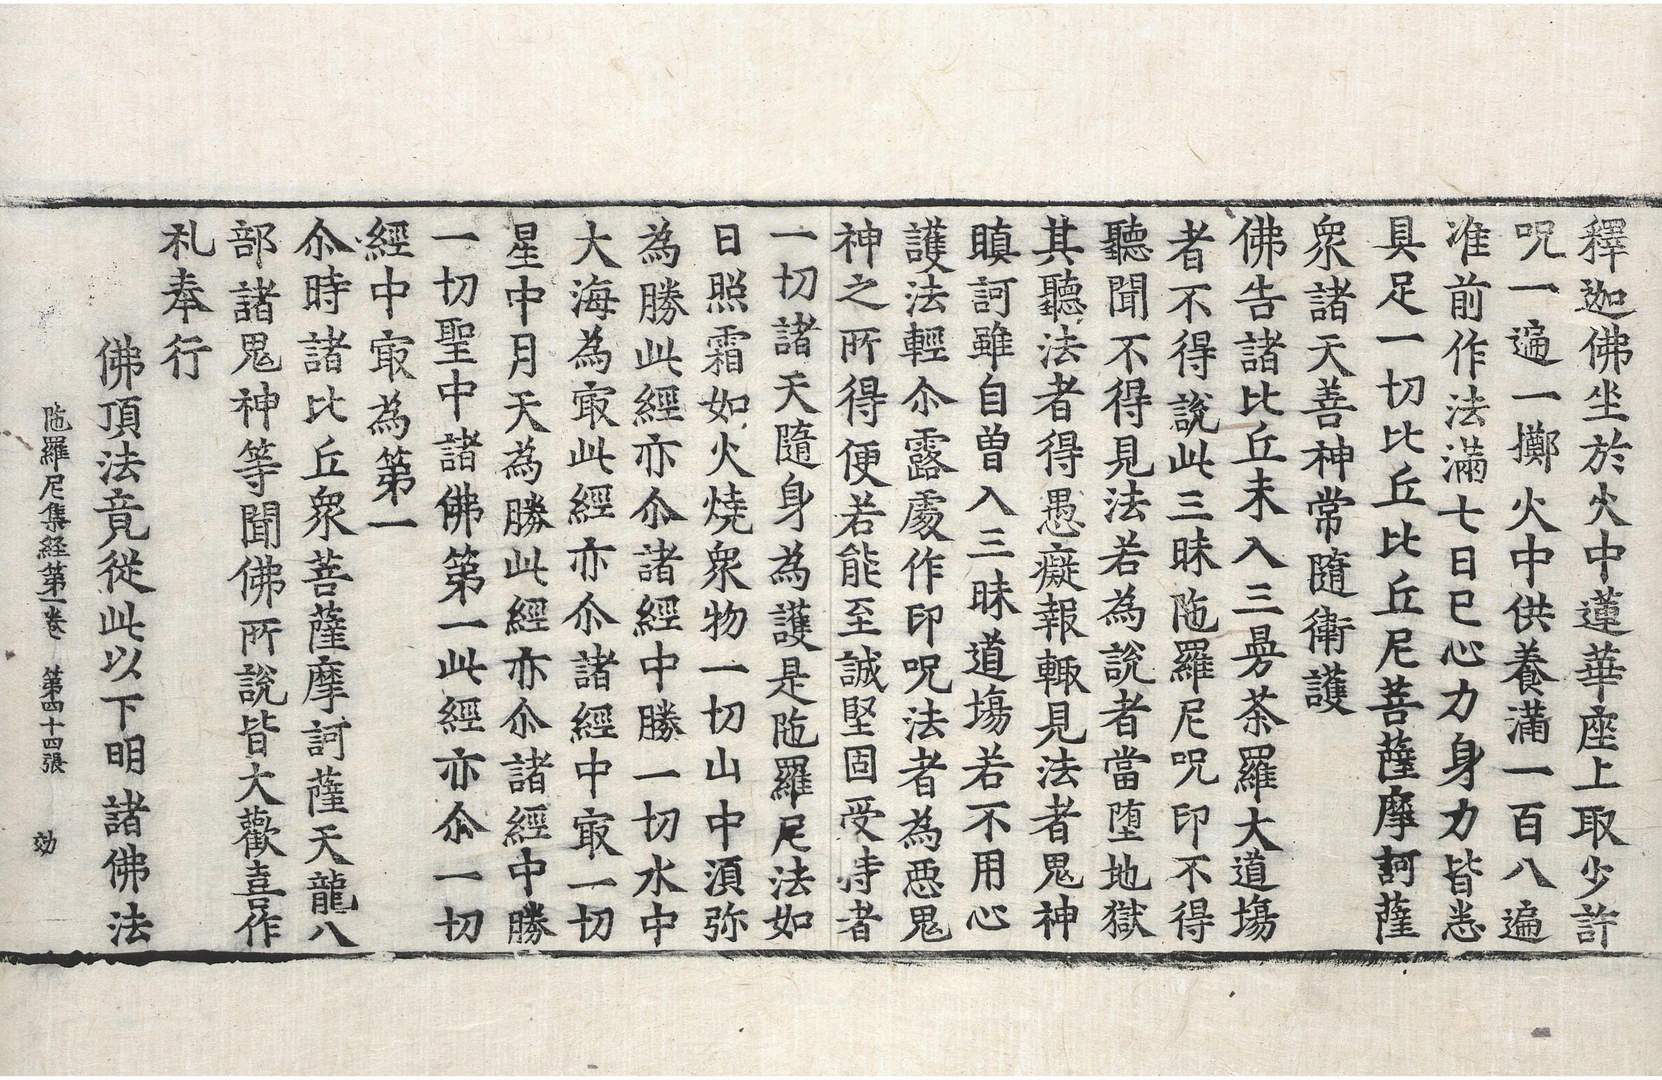 釋迦佛坐於火中蓮華座上取少許
呪一遍一擲火中供養滿一百八遍
准前作法滿七日已心力身力皆悉
具足一切比丘比丘尼菩薩摩訶薩
衆諸天善神常隨衛護
佛告諸比丘未入三曼茶羅大道塲
者不得說此三昧陁羅尼呪印不得
聽聞不得見法若為說者當堕地獄
其聽法者得愚癡報輙見法者鬼神
瞋訶雖自曽入三昧道塲若不用心
護法輕尒露處作印呪法者為惡鬼
神之所得便若能至誠堅固受持者
一切諸天隨身為護是陁羅尼法如
日照霜如火燒衆物一切山中湏弥
為勝此經亦尒諸經中勝一切水中
大海為㝡此經亦尒諸經中㝡一切
星中月天為勝此經亦尒諸經中勝
一切聖中諸佛第一此經亦尒一切
經中㝡為第一
尒時諸比丘衆菩薩摩訶薩天龍八
部諸鬼神等聞佛所說皆大歡喜作
礼奉行
佛頂法竟從此以下明諸佛法
陁羅尼集経第一卷　第四十四張　効